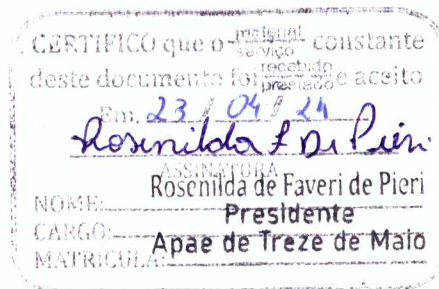 CERTIFICO que o material serviço constante
deste documento foi recebido prestado e aceito
Em, 23 / 04 / 24
Rosenilda F De Pieri
ASSINATURA
Rosenilda de Faveri de Pieri
NOME:
Presidente
CARGO:
Apae de Treze de Maio
MATRICULA: